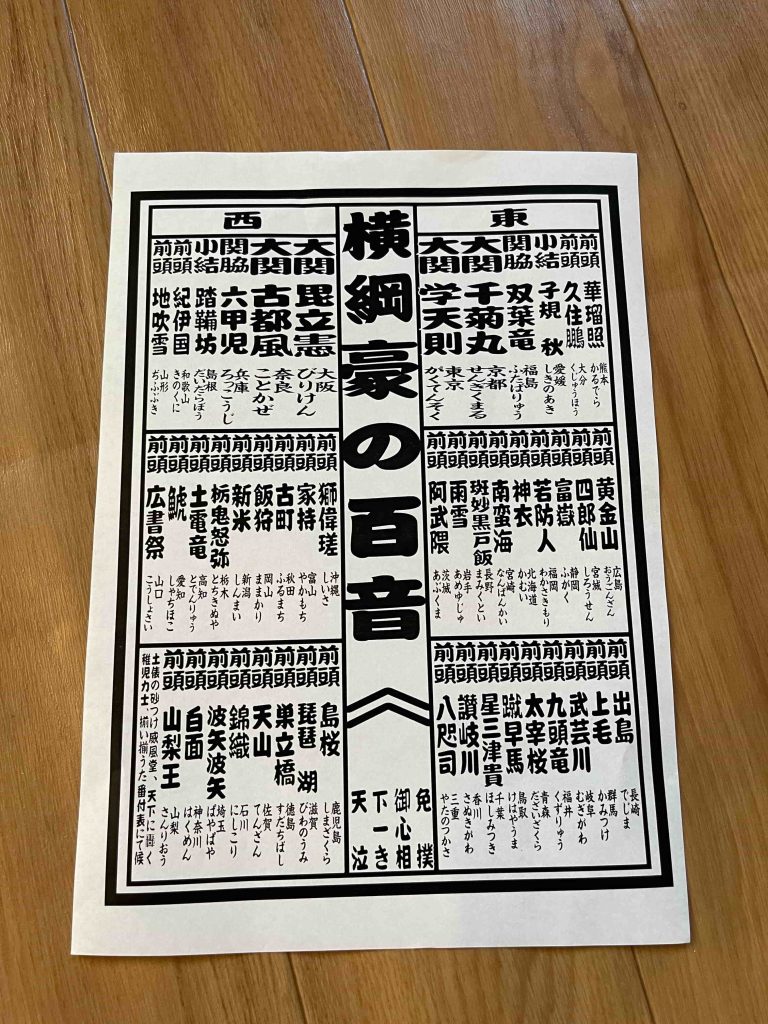 東
前頭 華瑠照 熊本 かるでら
前頭 久住鵬 大分 くじゅうほう
小結 子規秋 愛媛 しきのあき
関脇 双葉竜 福島 ふたばりゅう
大関 千菊丸 京都 せんぎくまる
大関 学天則 東京 がくてんそく
前頭 黄金山 広島 おうごんざん
前頭 四郎仙 宮城 しろうせん
前頭 富嶽 静岡 ふがく
前頭 若防人 福岡 わかさきもり
前頭 神衣 北海道 かむい
前頭 南蛮海 宮崎 なんばんかい
前頭 斑妙黒戸飯 長野 まみくとい
前頭 雨雪 岩手 あめゆじゅ
前頭 阿武隈 茨城 あぶくま
前頭 出島 長崎 でじま
前頭 上毛 群馬 かみつけ
前頭 武芸川 岐阜 むぎがわ
前頭 九頭竜 福井 くずりゅう
前頭 太宰桜 青森 だざいざくら
前頭 蹴早馬 鳥取 けはやうま
前頭 星三津貴 千葉 ほしみつき
前頭 讃岐川 香川 さぬきがわ
前頭 八咫司 三重 やたのつかさ
横綱豪の百音
免撲
御心相
下一き
天泣
西
大関 毘立憲 大阪 びりけん
大関 古都風 奈良 ことかぜ
関脇 六甲児 兵庫 ろっこうじ
小結 踏鞴坊 島根 だいだらぼう
前頭 紀伊国 和歌山 きのくに
前頭 地吹雪 山形 ぢふぶき
前頭 獅偉瑳 沖縄 しいさ
前頭 家持 富山 やかもち
前頭 古町 秋田 ふるまち
前頭 飯狩 岡山 ままかり
前頭 新米 新潟 しんまい
前頭 栃鬼怒弥 栃木 とちきぬや
前頭 土電竜 高知 とでんりゅう
前頭 鯱 愛知 しゃちほこ
前頭 広書祭 山口 こうしょさい
前頭 島桜 鹿児島 しまざくら
前頭 琵琶湖 滋賀 びわのうみ
前頭 巣立橋 徳島 すだちばし
前頭 天山 佐賀 てんざん
前頭 錦織 石川 にしこり
前頭 波矢波矢 埼玉 はやはや
前頭 白面 神奈川 はくめん
前頭 山梨王 山梨 さんりおう
土俵の砂つけ威風堂、天下に轟く
稚児力士、揃い揃うた番付表にて候